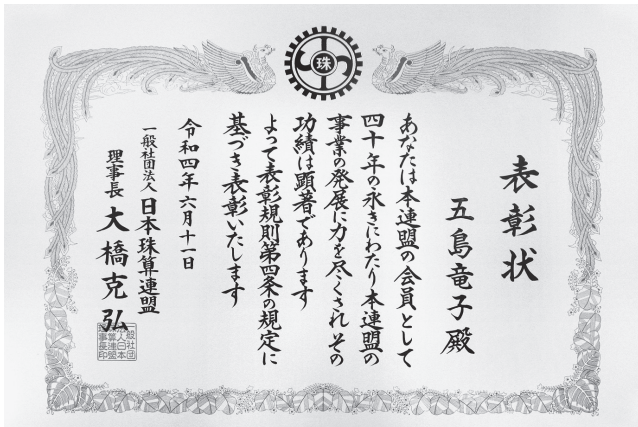 珠
表彰状
五島竜子殿
あなたは本連盟の会員として
四十年の永きにわたり本連盟の
事業の発展に力を尽くされその
功績は顕著であります
よって表彰規則第四条の規定に
基づき表彰いたします
令和四年六月十一日
一般社団法人 日本珠算連盟
理事長 大橋克弘
一般社団
法人日本
珠算連盟
理事長印